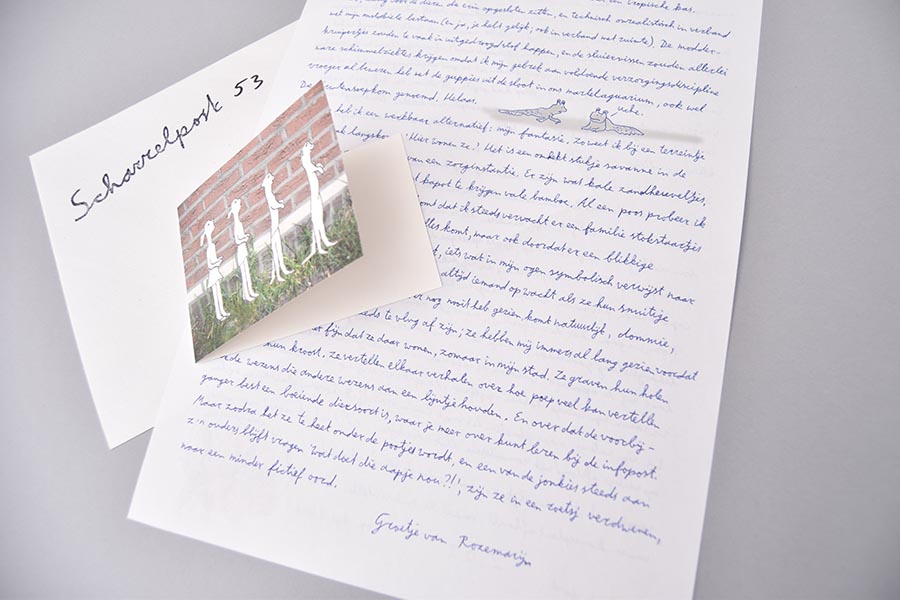 Scharrelpost 53
tropische kas.
voor de dieren die erin opgesloten zitten, en technisch onrealistisch in verband
met mijn mobiele bestaan (en ja, je hebt gelijk, ook in verband met ruimte). De modder-
kruipertjes zouden te vaak in uitgedroogd stof happen, en de sluiervissen zouden allerlei
nare schimmelziektes krijgen omdat ik mijn gebrek aan voldoende verzorgingsdiscipline
vroeger al leveren liet met de guppies uit de sloot in ons martelaquarium, ook wel
genoemd. Helaas.
uche.
heb ik een werkbaar alternatief: mijn fantasie, zo weet ik bij een terreintje
langskom: 'Hier wonen ze'! Het is een ontdekt stukje savanne in de
van een zorginstantie. Er zijn wat kale zandheuveltjes,
kapot te krijgen vale bamboe. Al een poos probeer ik
omdat ik steeds verwacht er een familie stokstaartjes
alles komt, maar ook doordat er een blikkige
iets wat in mijn ogen symbolisch verwijst naar
altijd iemand op wacht als ze hun snuitige
nog nooit heb gezien, komt natuurlijk, dommie,
te vlug af zijn; ze hebben mij immers al lang gezien voordat
fijn dat ze daar wonen, zomaar in mijn stad. Ze graven hun holen
hun kroost. Ze vertellen elkaar verhalen over hoe poep veel kan vertellen
wezens die andere wezens aan een lijntje houden. En over dat de voorbij-
ganger best een boeiende diersoort is, waar je meer over kunt leren bij de infopost.
Maar zodra het ze te heet onder de pootjes wordt, en een van de jonkies steeds aan
z'n ouders blijft vragen 'wat doet die aapje nou?!', zijn ze in een zoetsj verdwenen,
naar een minder fictief oord.
Groetje van Rozemarijn